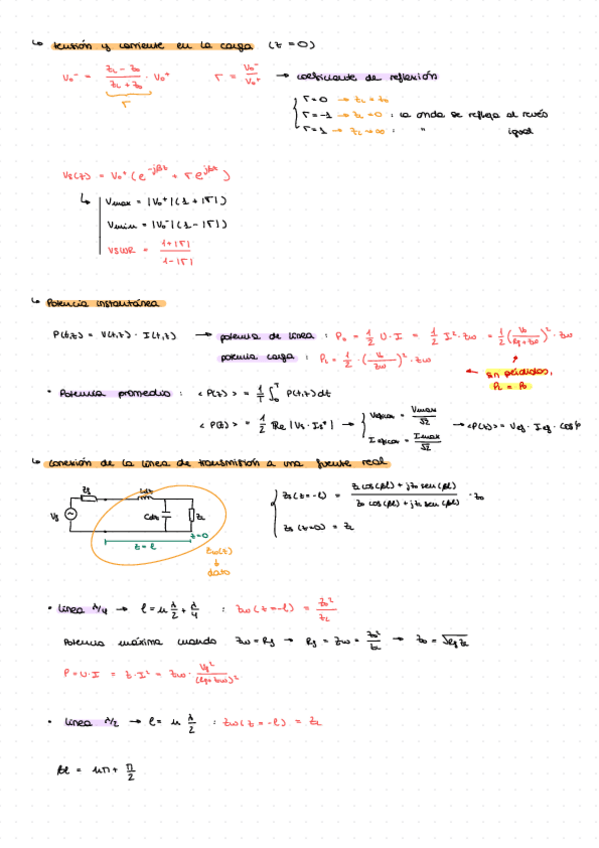 ↳ tensión y corriente en la carga (z=0)
V₀⁻ = (ZL - Z₀)/(ZL + Z₀) · V₀⁺   Γ = V₀⁻/V₀⁺ → coeficiente de reflexión
Γ
Γ=0 → ZL = Z₀
Γ=-1 → ZL=0 : la onda se refleja al revés
Γ=1 → ZL→∞ : " igual
Vs(z) = V₀⁺ (e^{-jβz} + Γ e^{jβz})
↳ Vmax = |V₀⁺| (1+|Γ|)
Vmin = |V₀⁻| (1-|Γ|)
VSWR = (1+|Γ|)/(1-|Γ|)
↳ Potencia instantánea
P(z,t) = V(z,t) · I(z,t) → potencia de línea : P₀ = 1/2 U·I = 1/2 I²·Zw = 1/2 (Vg/(Rg+Zw))² · Zw
potencia carga : PL = 1/2 · (V₀/Zw)² · Zw
← sin pérdidas,
PL = P₀
• Potencia promedio : <P(z)> = 1/T ∫₀ᵀ P(z,t) dt
<P(z)> = 1/2 Re |Vs · Is*| → { Veficaz = Vmax/√2
Ieficaz = Imax/√2 → <P(z)> = Vef · Ief · cos φ
↳ conexión de la línea de transmisión a una fuente real
Zg Ldz
Vg Cdz ZL
z=0
z=ℓ
Zw(z)
dato
Zs(z=-ℓ) = (ZL cos(βℓ) + jZ₀ sen(βℓ))/(Z₀ cos(βℓ) + jZL sen(βℓ)) · Z₀
Zs(z=0) = ZL
• línea λ/4 → ℓ = n λ/2 + λ/4 : Zw(z=-ℓ) = Z₀²/ZL
Potencia máxima cuando Zw = Rg → Rg = Zw = Z₀²/ZL → Z₀ = √(Rg ZL)
P = U·I = Z·I² = Zw · Vg²/(Rg+Zw)²
• línea λ/2 → ℓ = n λ/2 : Zw(z=-ℓ) = ZL
βℓ = nπ + π/2